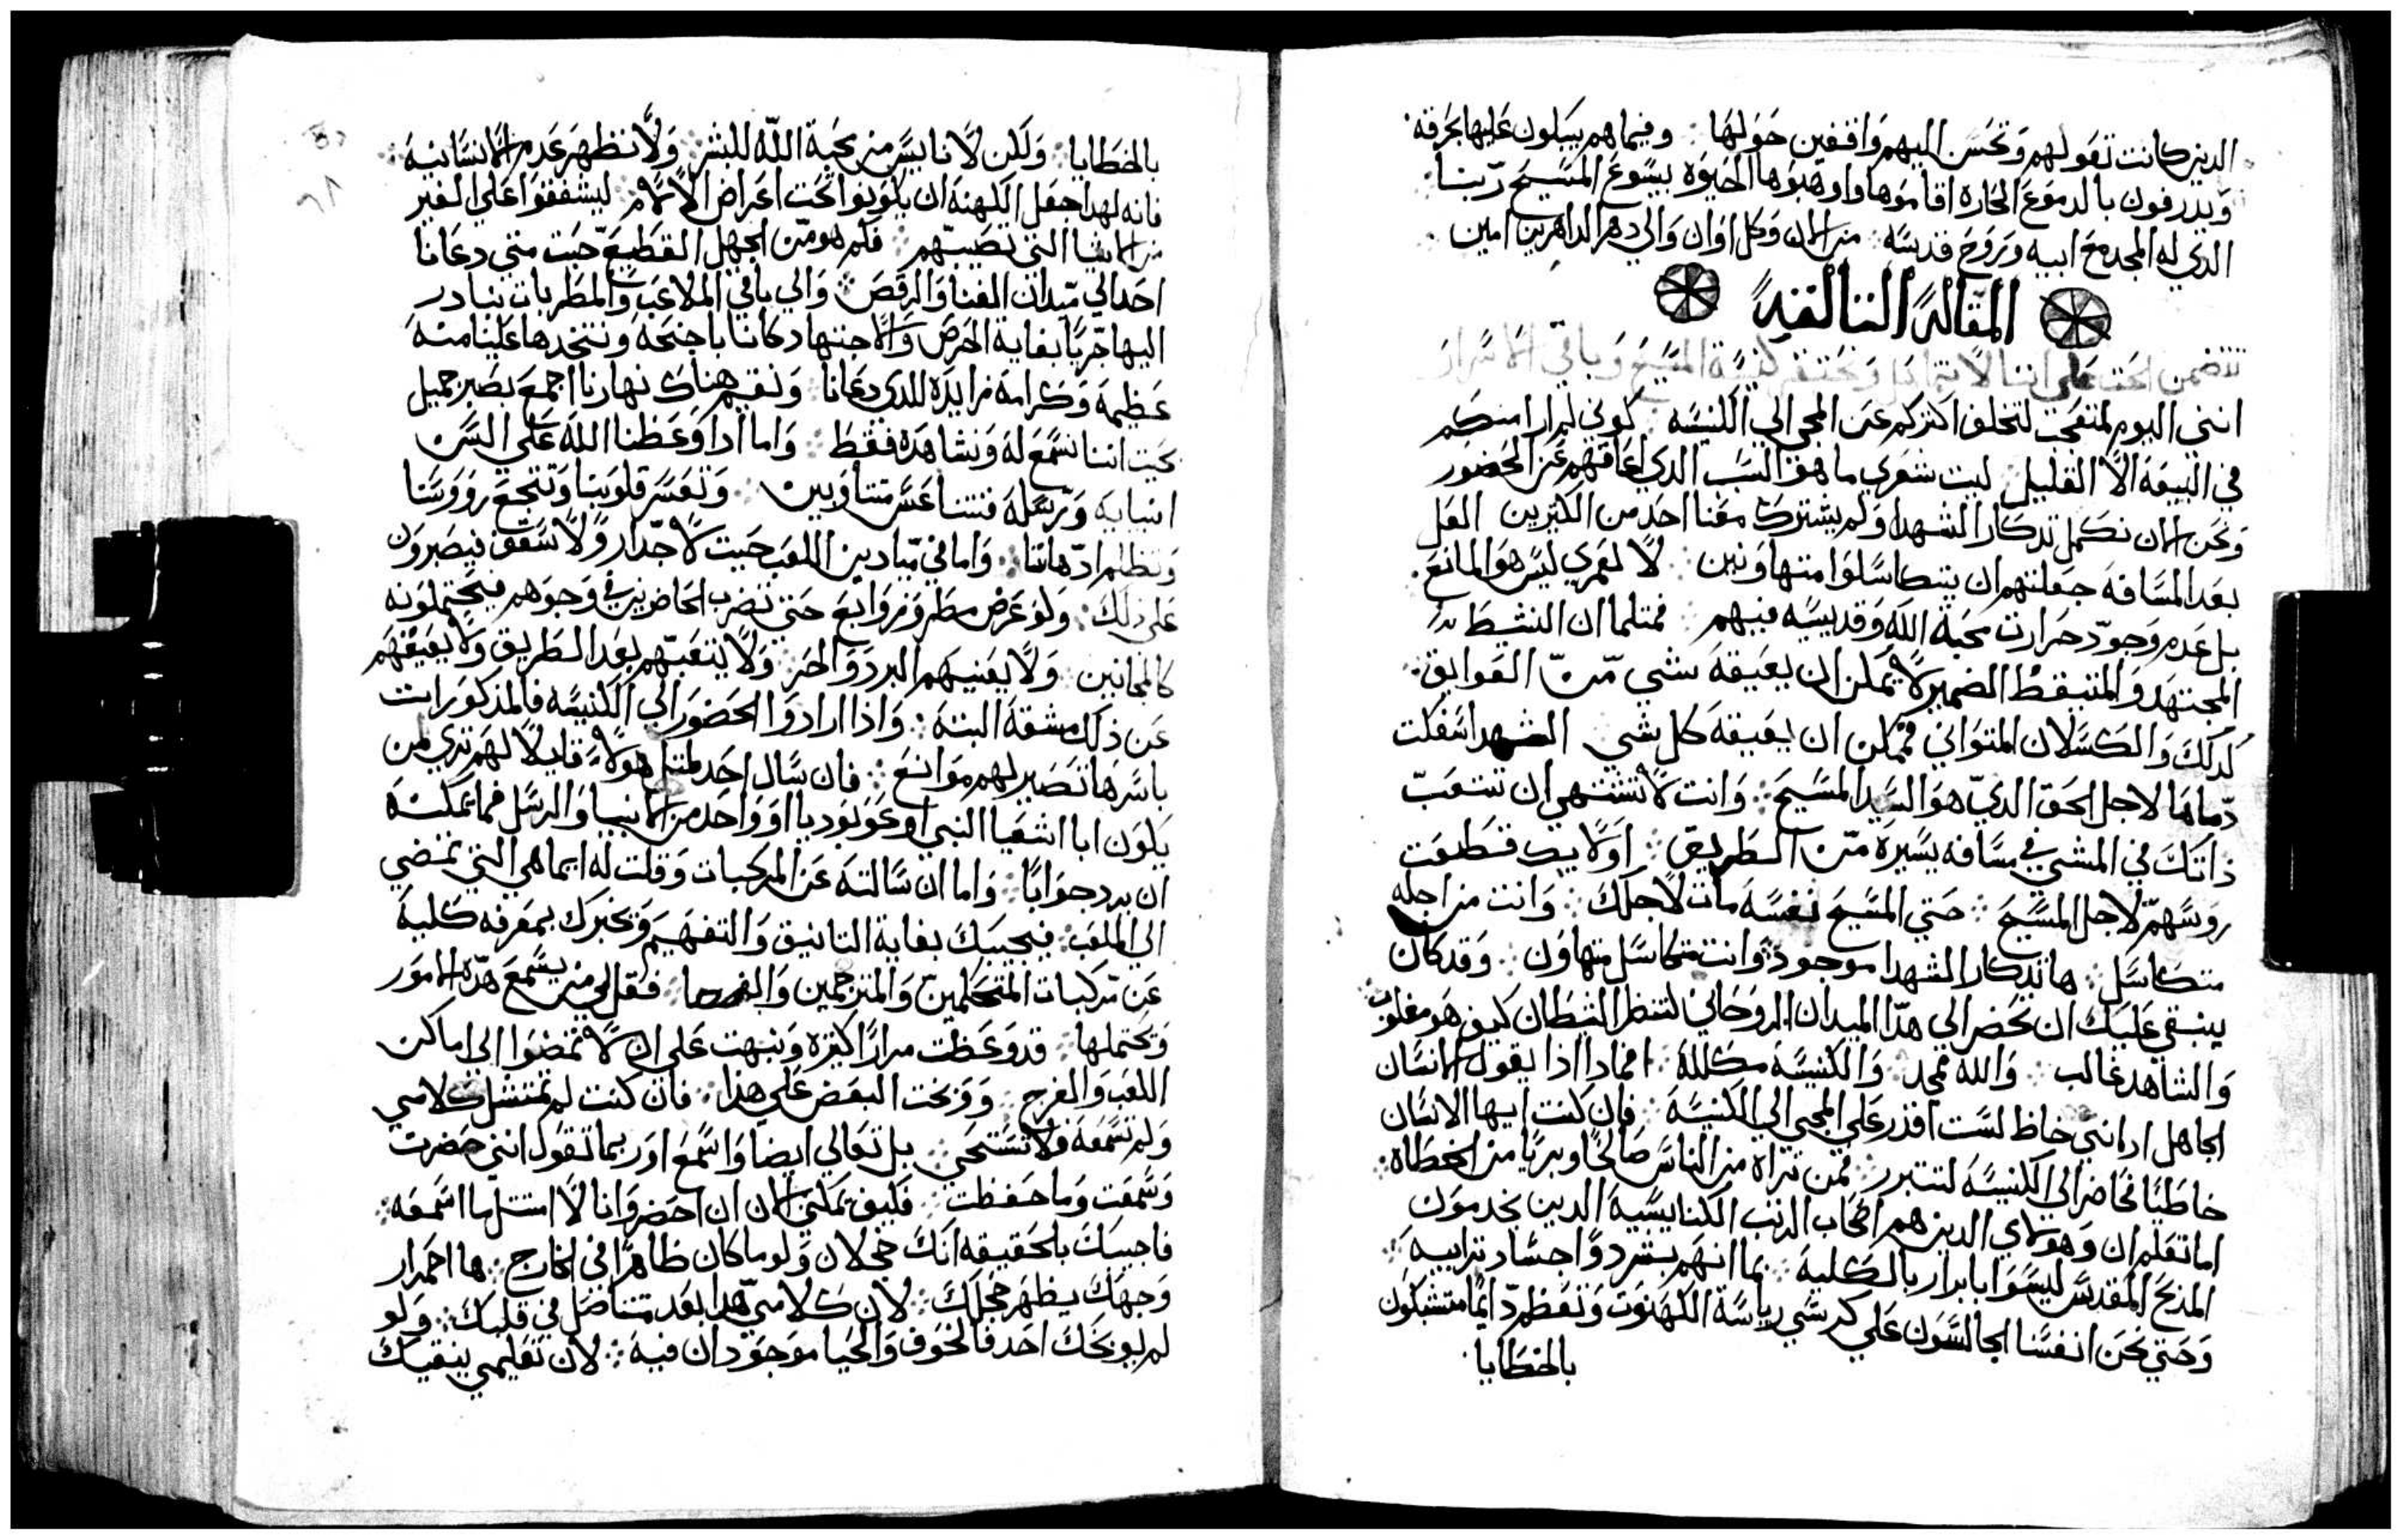 الدين كانت تعولهم وتحسن اليهم واقفين حولها ۞ وفيما هم يبكون عليها بحرقه
ويدرفون بالدموع الحاره اقاموها واوهبوها الحيوة بيسوع المسيح ربنا
الدي له المجد مع ابيه وبروح قدسه ۞ من الان وكل اوان والي دهر الداهرين امين
المقالة الثالثه
تتضمن الحث على اننا لا نتهامل ونحتقر كنيسة المسيح وباقي الاسرار
انني اليوم لمتفجع لتخلف اكثركم عن المجي الي الكنيسه كوني لم ارا منكم
في البيعه الا القليل ليت شعري ما هو السبب الدي اعاقهم عن الحضور
ونحن الان نكمل تدكار الشهدا ولم يشترك معنا احد من الكثيرين العل
بعد المسافه جعلتهم ان يتكاسلوا متهاونين لا لعمري ليس هو المانع
بل عدم وجود حرارت محبة الله وقديسيه فيهم فمتلما ان النشيط
المجتهد والمتيقظ الضمير لا يمكن ان يعيقه شي من العوايق
كدلك والكسلان المتواني فممكن ان يعيقه كل شي الشهدا سفكت
دماها لاجل الحق الدي هو السيد المسيح وانت لا تشتهي ان تتعب
ذاتك في المشي في مسافه يسيره من الطريق اولايك قطعت
روسهم لاجل المسيح حتي المسيح نفسه مات لاجلك وانت من اجله
متكاسل ها تدكار الشهدا موجود وانت متكاسل متهاون وقد كان
ينبغي عليك ان تحضر الي هدا الميدان الروحاني لتنظر الشطان كيف هو مغلوب
والشاهد غالب والله ممجد والكنيسه مكلله فمادا اذا يقول الانسان
الجاهل ارا انني خاط لست اقدر على المجي الي الكنيسة فان كنت ايها الانسان
خاطيًا فاحضر الي الكنيسه لتتبرر فمن تراه من الناس صالحًا وبريًا من الخطاه
اما تعلم ان وهولاي الدين هم اصحاب الرتب الكنايسيه الدين يخدمون
المدبح المقدس ليسوا بابرار بالكليه بما انهم بشر دوا اجساد ترابيه
وحتي نحن انفسنا الجالسون علي كرسي رياسة الكهنوت ونعظ دايمًا متشبكون
بالخطايا
بالخطايا ولكن لا نايس من محبة الله للبشر ولا نظهر عدم الانسانيه
فانه لهدا جعل الكهنه ان يكونوا تحت اعراض الالام ليشفقوا علي الغير
من الاشيا التي تصيبهم فكم هو من الجهل القطيع حيث متي دعانا
احد الي ميدان الغنا والرقص والي باقي الملاعب والمطربات نبادر
اليها جريًا بغاية الحرص والاجتهاد كاننا باجنحه ونتخدها علينا منه
عظيمه وكرامه مزايده للدي دعانا ونقيم هناك نهارنا اجمع بصبر جميل
بحيث اننا نسمع له ونشاهده فقط واما ادا وعظنا الله على السن
انبيايه ورسله فتنا عس متتاوبين وتعسر قلوبنا وتتجع رووسنا
وتظلم ادهاننا واما في ميادين اللعب حيث لا جدار ولا سقف فيصبرون
علي ذلك ولو عرض مطر وزوابع حتي تضرب الحاضرين في وجوههم فيحتملونه
كالمجانين ولا يعنيهم البرد والحر ولا يتعبهم بعد الطريق ولا يعيقهم
عن ذلك مشقه البته واذا ارادوا الحضور الي الكنيسه فالمذكورات
باسرها تصير لهم موانع فان سال احد لمثل هولاء قايلا لهم تري لمن
يكون ابا اشعيا النبي او عوبوديا او واحد من الانبيا والرسل فما يمكنه
ان يرد جوابًا واما ان سالته عن المركبات وقلت له ايما هي التي تمضي
الي الملعب فيجيبك بغاية التانيق والتفهيم ويخبرك بمعرفه كليه
عن مركبات المتكلمين والمترجمين فقل لي من يسمع هده الامور
وتحتملها قد وعظت مرارًا كثيره ونبهت علي ان لا تمضوا الي اماكن
اللعب والفرج ووبخت البعض علي هذا فان كنت لم تمتثل كلامي
ولم تسمعه فلا تستحي بل تعالي ايضا واسمع او ربما تقول انني حضرت
وسمعت وما حفظت فكيف يمكني الان ان احضر وانا لا امتثل ما اسمعه
فاجيبك بالحقيقه انك خجلان ولو ما كان ظاهرًا في الخارج ها احمرار
وجهك يظهر خجلك لان كلامي هدا بعد تتناضل في قلبك ولو
لم يوبخك احد فالخوف والحيا موجودان فيه لان تعليمي ينقيك